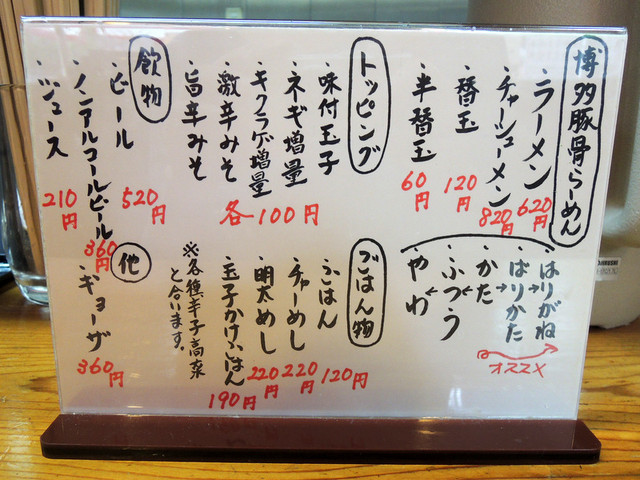 博多豚骨らーめん
・ラーメン 620円
・チャーシューメン 820円
・替玉 120円
・半替玉 60円
・はりがね
・ばりかた
・かた
・ふつう
・やわ
オススメ
トッピング
・味付玉子
・ネギ増量
・キクラゲ増量
・激辛みそ
・旨辛みそ
各100円
ごはん物
・ごはん 120円
・チャーめし 220円
・明太めし 220円
・玉子かけごはん 190円
※各種辛子高菜
と合います。
飲物
・ビール 520円
・ノンアルコールビール 360円
・ジュース 210円
他
・ギョーザ 360円